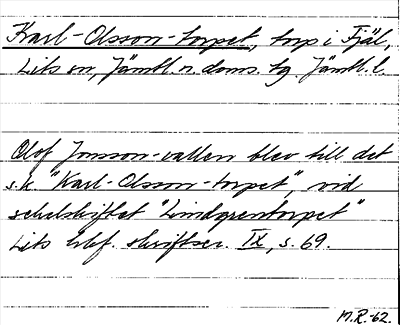 Karl-Olsson-torpet, torp i Fjäl,
Lits sn, Jämtl. n. doms. tg. Jämtl. l.
Olof Jonsson-vallen blev till det
s.k. "Karl-Olsson-torpet", vid
sekelskiftet "Lindgrentorpet"
Lits hbf. skriftser. IX, s. 69.
M.R.-62.